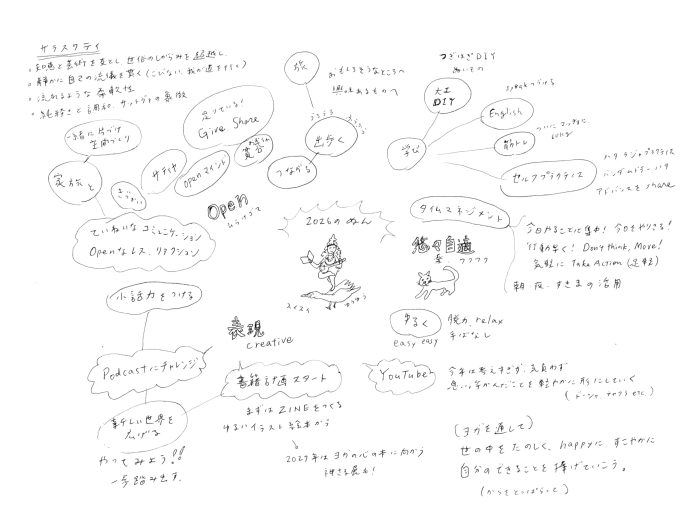 サラスワティ
・知恵と芸術を支とし、世俗のしがらみを超越し.
・静かに自己の流儀を貫く(こびない、我が道を行く)
・流れるような柔軟性
・純粋さと調和、サットヴァの象徴
一緒に片づけ
空間づくり
家族と
サティヤ
足りている!
Give Share
Open マインド
寛容
Open
ていねいなコミュニケーション
Openなレス、リアクション
旅
おもしろそうなところへ
興味あるものへ
出歩く
つながる
つぎはぎDIY
ぬいもの
大工
DIY
speakつづける
English
筋トレ
学び
セルフプラクティス
アドバンスをshare
2026のぬん
スイスイ
タイムマネジメント
今日やることに集中! 今日をやりきる!
行動早く! Don't think, Move!
気軽に Take Action (足軽)
朝、夜、すきまの活用
悠々自適
楽、フワフワ
ゆるく
easy easy
脱力、relax
手ばなし
小話力をつける
表現
creative
Podcastにチャレンジ
書籍計画スタート
まずはZINEをつくる
ゆるいイラスト絵本から
新しい世界を
広げる
やってみよう!!
一歩踏み出す.
2027年はヨガの心の本に向かう
YouTube
今年は考えすぎず、気負わず
思い浮かんだことを軽やかに形にしていく
(ヨガを通して)
世の中をたのしく、happyに、すこやかに
自分のできることを捧げていこう。
(からをとっぱらって)